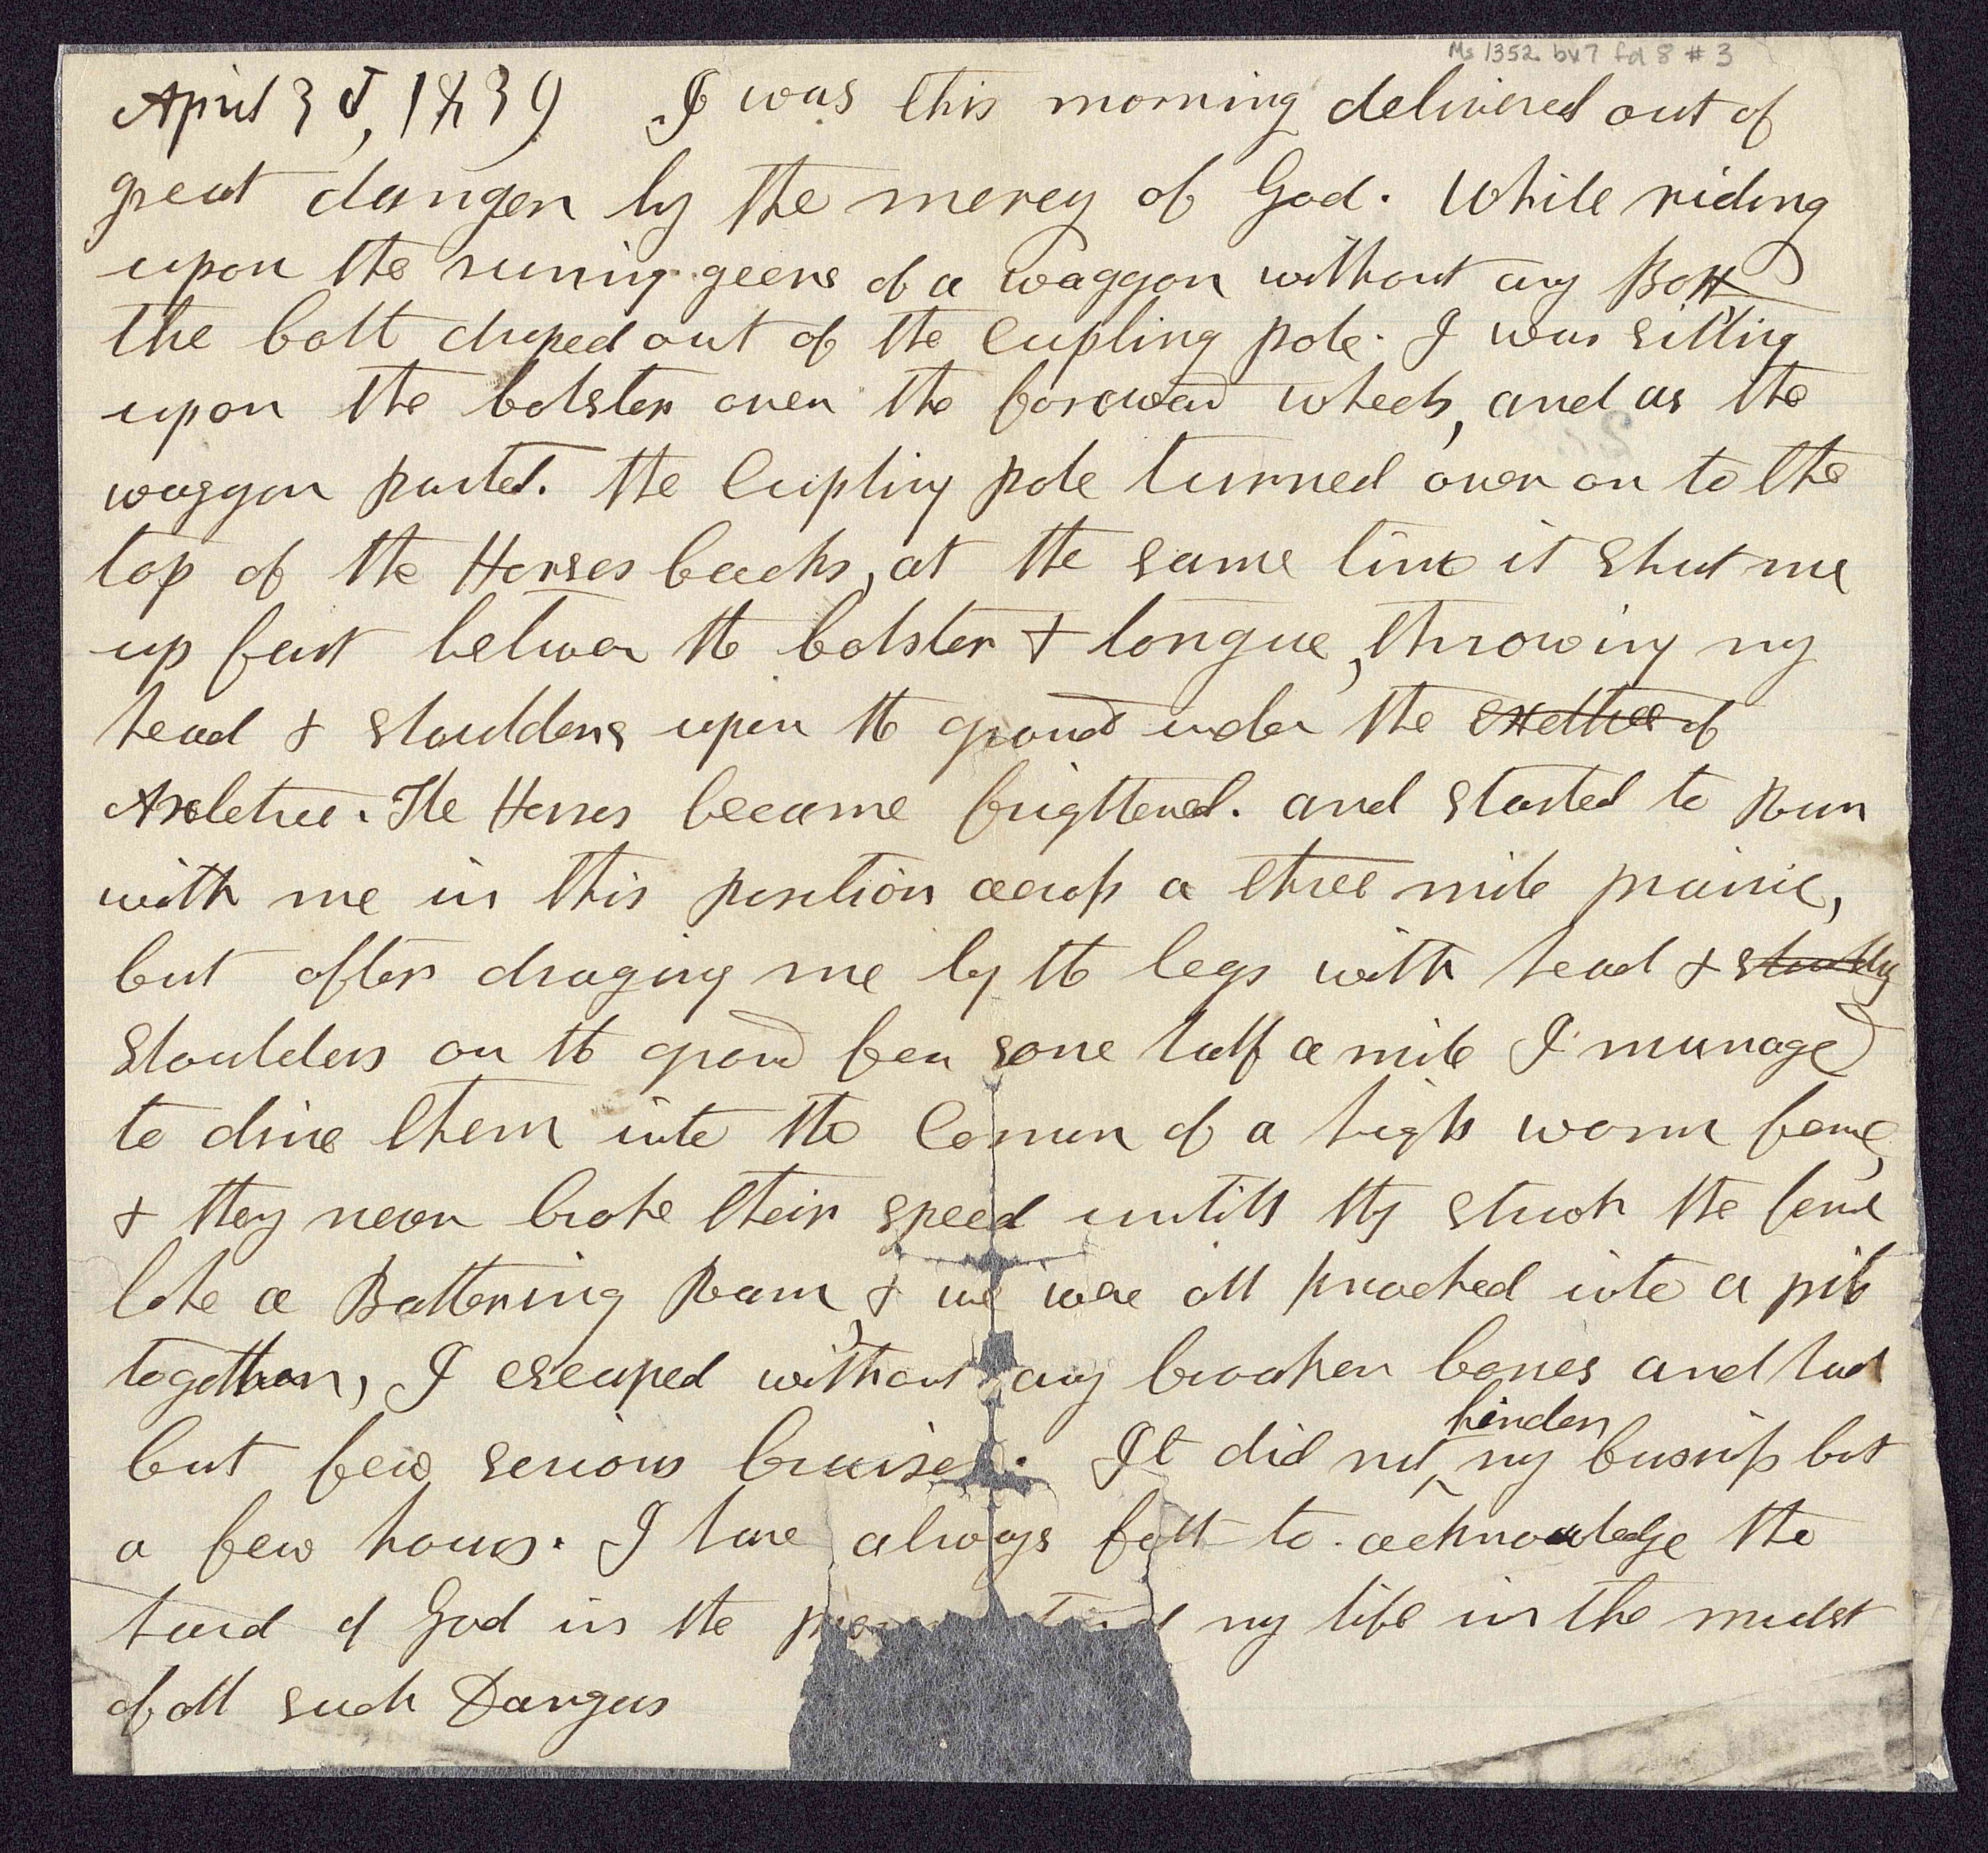 Ms 1352 bx7 fd 8 # 3
April 3d, 1839 I was this morning delivered out of
great danger by the mercy of God. While riding
upon the runing geers of a waggon without any Box
the bolt droped out of the Cupling pole. I was sitting
upon the bolster over the foreward wheels, and as the
waggon parted. the Cupling pole turned over on to the
top of the Horses backs, at the same time it shut me
up fast between the bolster & tongue, throwing my
head & shoulders upon the ground under the of
Axeletree. The Horses became frightened. and started to Run
with me in this position across a three mile prairie,
but after draging me by the legs with head &
shoulders on the ground for some half a mile I managed
to drive them into the Corner of a high worm fence,
& they never broke their speed untill they struck the fence
like a Battering Ram, & we were all knocked into a pile
together, I escaped without any broaken bones and had
but few serious bruises. It did not hinder my business but
a few hours. I have always felt to acknowledge the
hand of God in the my life in the midst
of all such Dangers